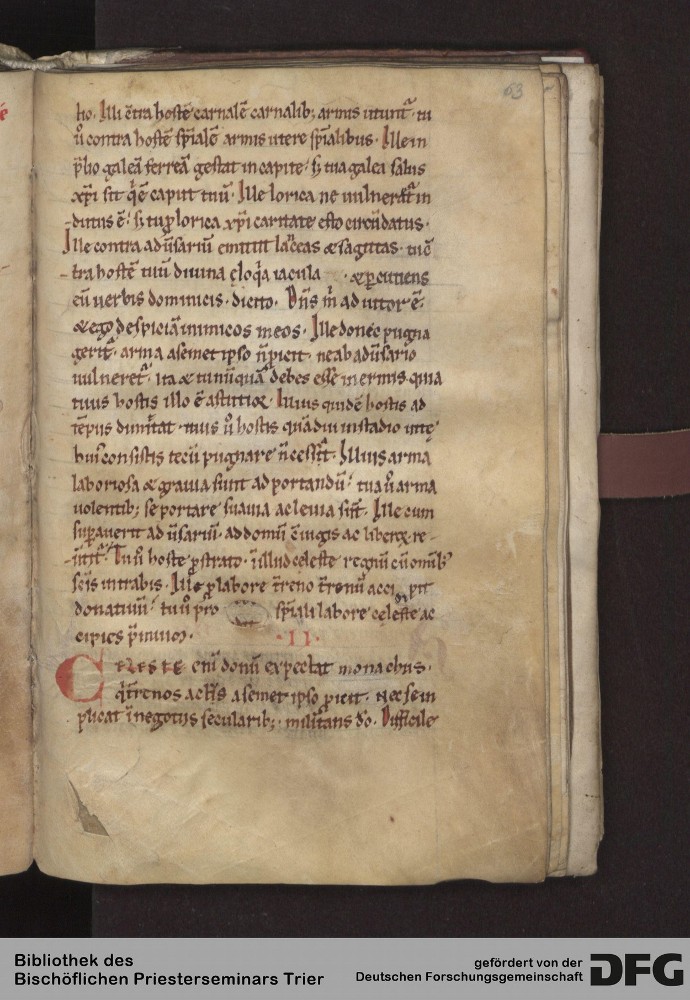 63
lio. Illi ꝯtra hostē carnalē carnalib; armis utunt᷑. tu
ů contra hostē sp̄ialē armis utere sp̄ialibus. Ille in
p̄lio galeā ferreā gestat in capite. s; tua galea salus
xp̄i sit q̄ ē caput tuū. Ille lorica ne uulneret᷑ in
dutus ē. s; tu ꝓ lorica xp̄i caritate esto circūdatus.
Ille contra adůsariū emittit lanceas & sagittas. tu cō
tra hostē tuū diuina eloq̄a iacula & ꝑcutiens
eū uerbis dominicis. dicito. Dn̄s m̄ adiutor ē.
& ego despiciā inimicos meos. Ille donec pugna
gerit᷑. arma a semet ipso n̄ ꝓicit. ne ab adůsario
uulneret᷑. ita & tu nūquā debes esse inermis quia
tuus hostis illo ē astutior. Illius quidē hostis ad
tēpus dimicat. tuus ů hostis quādiu in stadio uite
huiꝰ consistis tecū pugnare n̄ cessat. Illius arma
laboriosa & grauia sunt ad portandū. tua ů arma
uolentib; se portare suauia ac leuia sunt. Ille cum
suꝑauerit adůsariū. ad domū ꝯiugis ac liberoꝝ re
Tu ů hoste ꝓstrato. ī illud celeste regnū cū omnibꝰ
sc̄is intrabis. Ille ꝓ labore t̄reno t̄renū accipit
donatiuū. tu ů ꝓ sp̄iali labore celeste ac
cipies p̄miū.
.II.
CELESTE enī donū expectat monachus.
q̇ t̄renos actus a semet ipso ꝓicit. Nec se in
plicat ī negotiis secularib;. militans d̄o. Difficile
Bibliothek des
Bischöflichen Priesterseminars Trier
gefördert von der
Deutschen Forschungsgemeinschaft
DFG